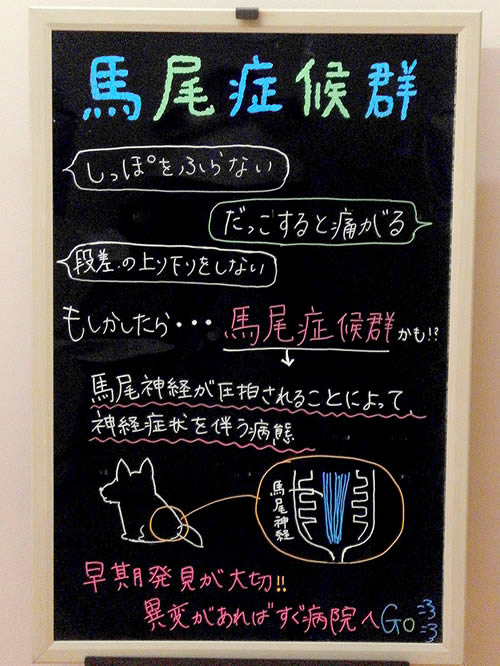 馬尾症候群
しっぽをふらない
だっこすると痛がる
段差の上り下りをしない
もしかしたら・・・馬尾症候群かも!?
馬尾神経が圧拍されることによって、
神経症状を伴う病態
馬尾神経
早期発見が大切!!
異変があればすぐ病院へGo